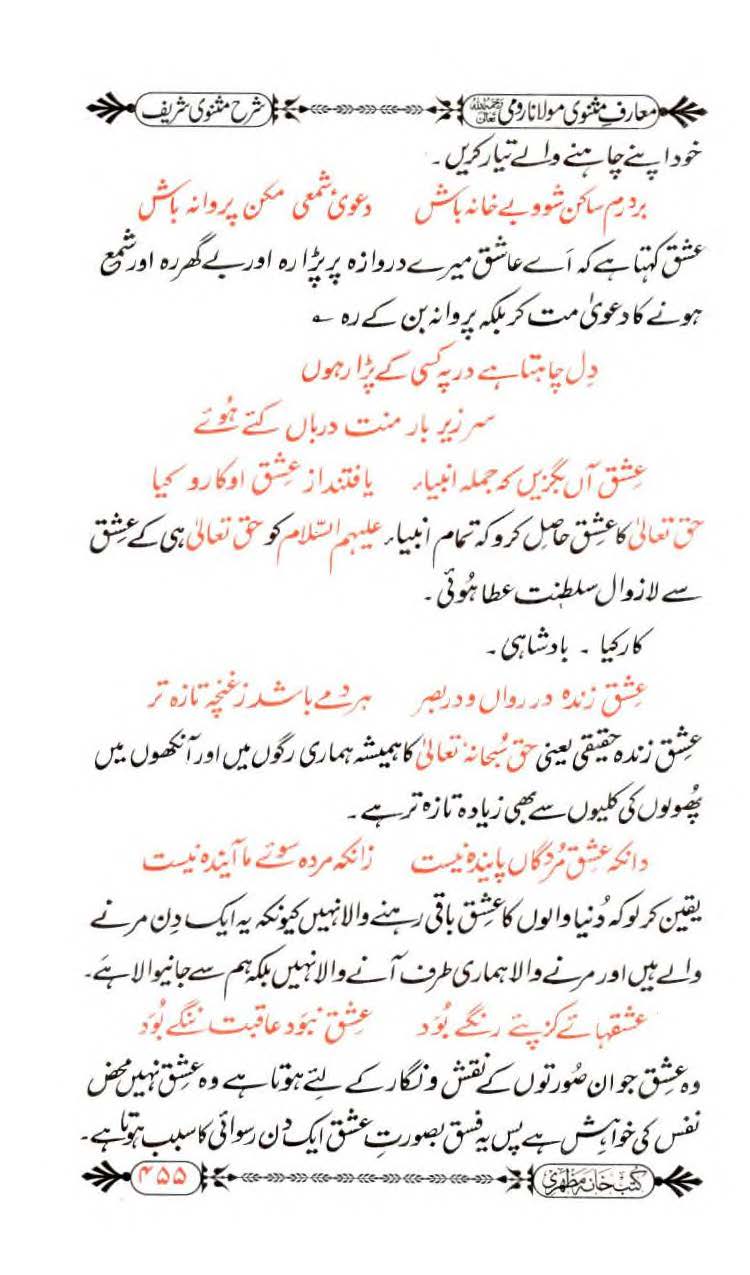 معارفِ مثنوی مولانا رومی رحمۃ اللہ تعالیٰ شرح مثنوی شریف
خود اپنے چاہنے والے تیار کریں۔
بردرم ساکن شو و بے خانہ باش دعویٰ شمعی مکن پروانہ باش
عشق کہتا ہے کہ اَے عاشق میرے دروازہ پر پڑا رہ اور بے گھر رہ اور شمع
ہونے کا دعویٰ مت کر بلکہ پروانہ بن کے رہ ؎
دِل چاہتا ہے در پہ کسی کے پڑا رہوں
سر زیر بار منت درباں کئے ہُوئے
عشق آں بگزیں کہ جملہ انبیاء یافتند از عشق او کار و کیا
حق تعالیٰ کا عشق حاصِل کرو کہ تمام انبیاء علیہم السّلام کو حق تعالیٰ ہی کے عشق
سے لازوال سلطنت عطا ہُوئی۔
کار کیا ۔ بادشاہی ۔
عشق زندہ در رواں و در بصر ہر دمے باشد ز غنچہ تازہ تر
عشق زندہ حقیقی یعنی حق سُبحانہٗ تعالیٰ کا ہمیشہ ہماری رگوں میں اور آنکھوں میں
پھُولوں کی کلیوں سے بھی زیادہ تازہ تر ہے۔
دانکہ عشقِ مُردگاں پایندہ نیست زانکہ مردہ سوئے ما آیندہ نیست
یقین کر لو کہ دُنیا والوں کا عشق باقی رہنے والا نہیں کیونکہ یہ ایک دِن مرنے
والے ہیں اور مرنے والا ہماری طرف آنے والا نہیں بلکہ ہم سے جانیوالا ہے۔
عشقہائے کز پئے رنگے بُوَد عشق نبوَد عاقبت ننگے بُوَد
وہ عشق جو ان صُورتوں کے نقش و نگار کے لئے ہوتا ہے وہ عشق نہیں محض
نفس کی خواہش ہے پس یہ فسق بصورتِ عشق ایک دن رسوائی کا سبب ہوتا ہے۔
کتب خانہ مظہری ۴۵۵